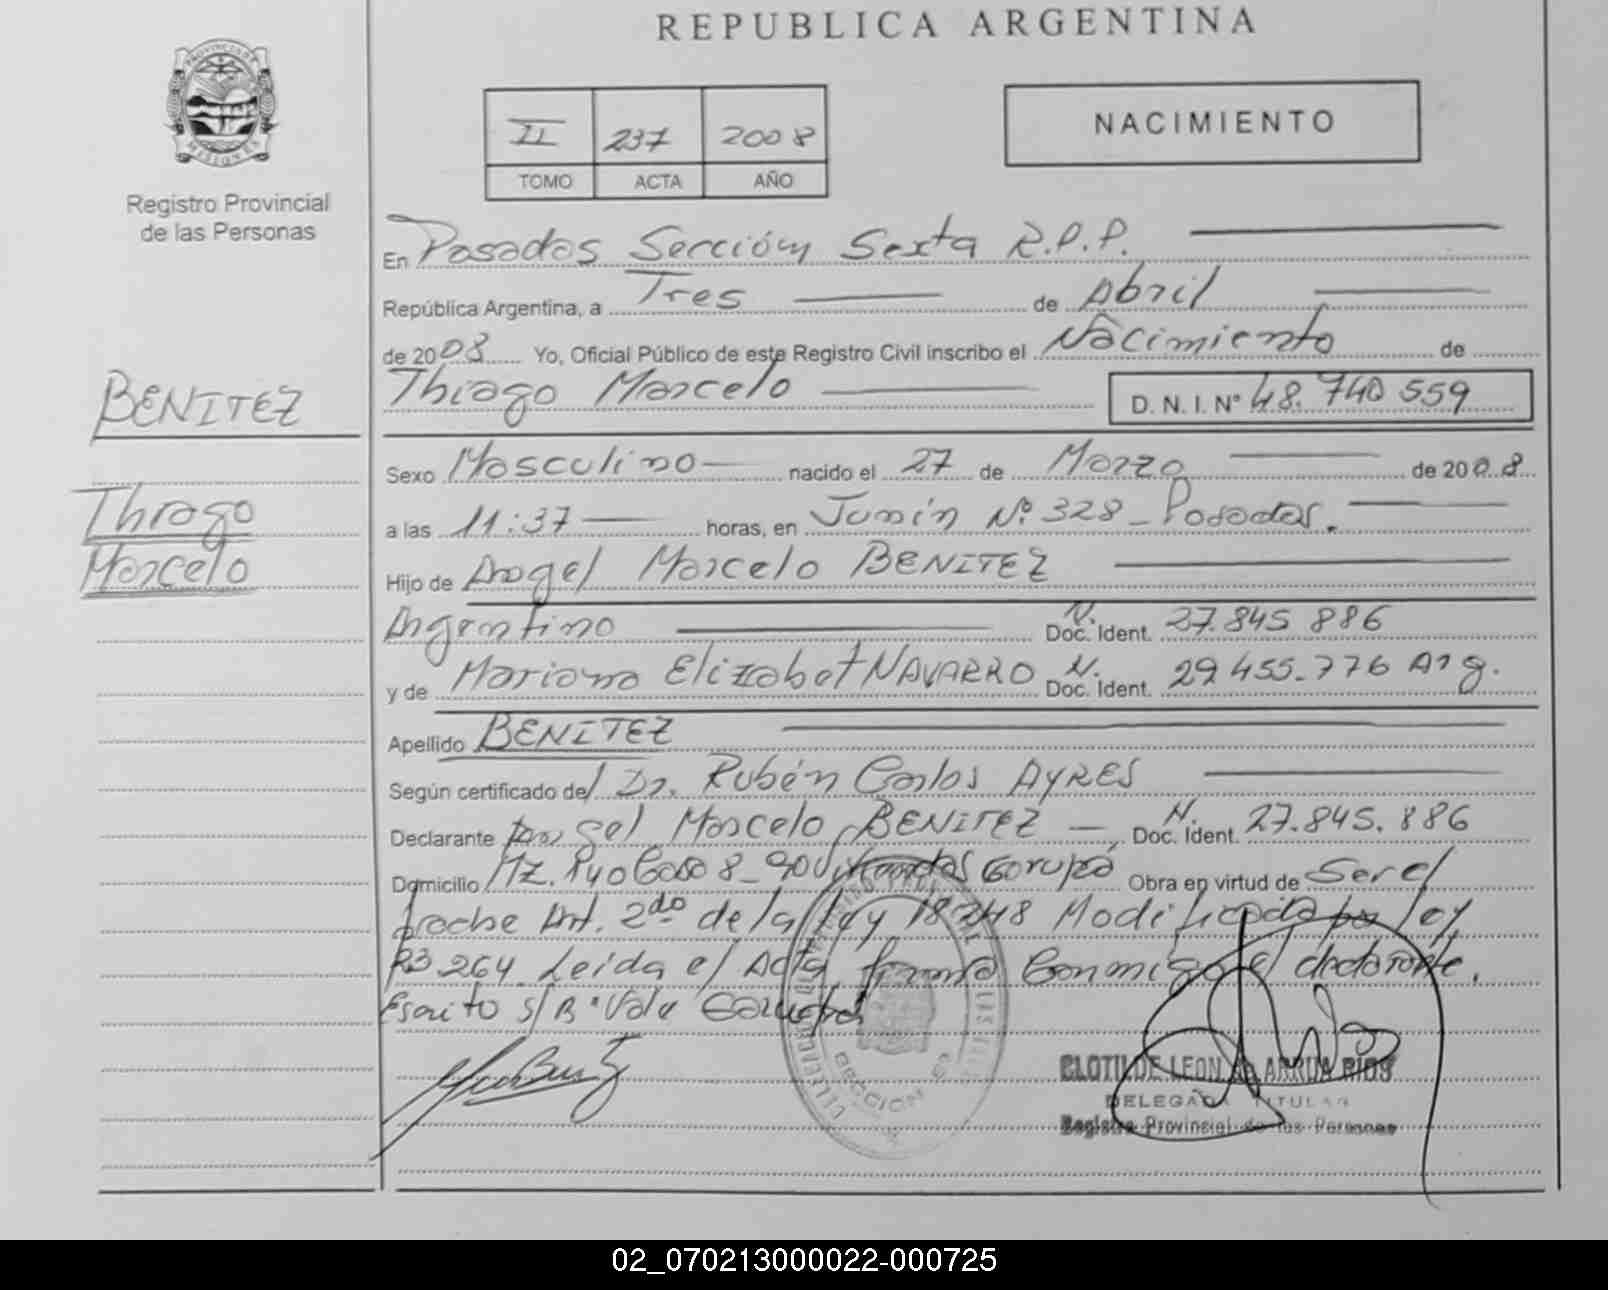 REPUBLICA ARGENTINA
PROVINCIA DE MISIONES
Registro Provincial
de las Personas
II 237 2008
TOMO ACTA AÑO
NACIMIENTO
En Posadas Sección Sexta R.P.P.
República Argentina, a Tres de Abril
de 2008 Yo, Oficial Público de este Registro Civil inscribo el Nacimiento de
Thiago Marcelo D. N. I. N° 48.740 559
BENITEZ
Thiago
Marcelo
Sexo Masculino nacido el 27 de Marzo de 2008
a las 11:37 horas, en Junín Nº 328 - Posadas.
Hijo de Angel Marcelo BENITEZ
Argentino N. Doc. Ident. 27.845 886
y de Mariana Elizabet NAVARRO N. Doc. Ident. 29 455.776 Arg.
Apellido BENITEZ
Según certificado del Dr. Rubén Carlos AYRES
Declarante Angel Marcelo BENITEZ N. Doc. Ident. 27.845.886
Domicilio MZ. Casa 8 - 90 Viviendas Garupá Obra en virtud de Ser el
Art. 2do de la Ley 18248 Modificada por ley
23.264 Leida el Acta firma Conmigo el declarante.
Escrito S/B "Vale
SECCION 6
CLOTILDE LEON de ARRUA RIOS
DELEGADA TITULAR
Registro Provincial de las Personas
02_070213000022-000725